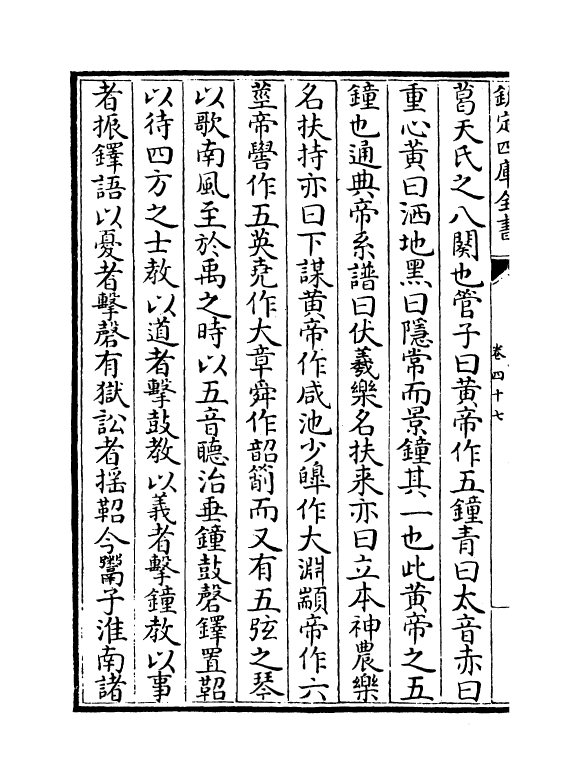 欽定四庫全書
卷四十七
葛天氏之八闋也管子曰黃帝作五鐘青曰太音赤曰
重心黃曰洒地黑曰隱常而景鐘其一也此黃帝之五
鐘也通典帝系譜曰伏羲樂名扶来亦曰立本神農樂
名扶持亦曰下謀黃帝作咸池少皡作大淵顓帝作六
莖帝嚳作五英堯作大章舜作韶箾而又有五弦之琴
以歌南風至於禹之時以五音聽治垂鐘鼓磬鐸置鞀
以待四方之士教以道者擊鼓教以義者擊鐘教以事
者振鐸語以憂者擊磬有獄訟者揺鞀今鬻子淮南諸